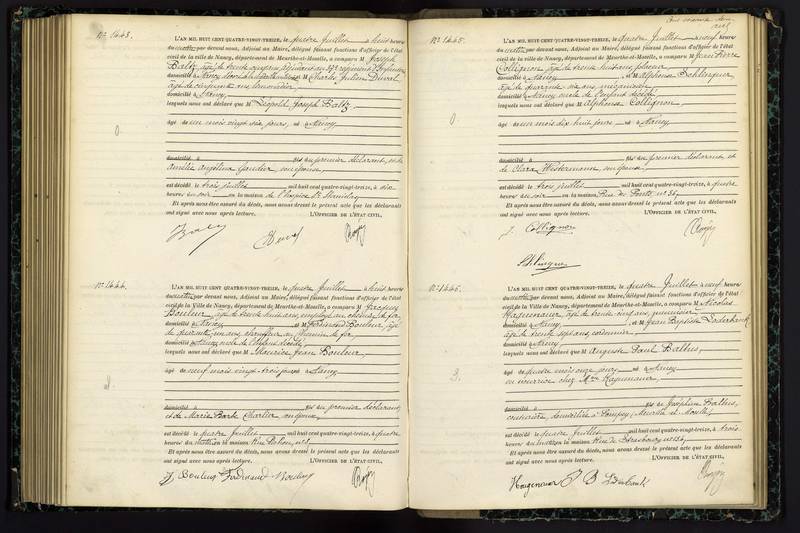 N° 1443.
L'AN MIL HUIT CENT QUATRE-VINGT-TREIZE, le quatre Juillet à huit heures
du matin par devant nous, Adjoint au Maire, délégué faisant fonctions d'officier de l'état
civil de la ville de Nancy, département de Meurthe-et-Moselle, a comparu M Joseph
Baltz, âgé de trente
domicilié à Nancy et M Charles Julien Duval
âgé de cinquante ans
domicilié à Nancy,
lesquels nous ont déclaré que M Léopold Joseph Baltz,
âgé de un mois vingt six jours, né à Nancy
domicilié à fils du premier déclarant, et de
Amélie Angélina Gaudier son épouse,
est décédé le trois juillet mil huit cent quatre-vingt-treize, à six
heures du soir en la maison de l'hospice St Stanislas
Et après nous être assuré du décès, nous avons dressé le présent acte que les déclarants
ont signé avec nous après lecture. L'OFFICIER DE L'ÉTAT CIVIL,
N° 1444.
L'AN MIL HUIT CENT QUATRE-VINGT-TREIZE, le quatre Juillet à huit heures
du matin par devant nous, Adjoint au Maire, délégué faisant fonctions d'officier de l'état
civil de la Ville de Nancy, département de Meurthe-et-Moselle, a comparu M Jacques
Bouleur, âgé de trente huit ans, employé au chemin de fer,
domicilié à Nancy et M Ferdinand Bouleur, âgé
de quarante un ans, chauffeur au chemin de fer,
domicilié à Nancy, oncle de l'enfant décédé,
lesquels nous ont déclaré que M Maurice Jean Bouleur,
âgé de neuf mois vingt-trois jours né à Nancy
domicilié à fils du premier déclarant
et de Marie Barbe Chartier son épouse,
est décédé le quatre Juillet mil huit cent quatre-vingt-treize, à quatre
heures du matin en la maison Rue
Et après nous être assuré du décès, nous avons dressé le présent acte que les déclarants
ont signé avec nous après lecture. L'OFFICIER DE L'ÉTAT CIVIL,
N° 1445.
L'AN MIL HUIT CENT QUATRE-VINGT-TREIZE, le quatre Juillet à neuf heures
du matin par devant nous, Adjoint au Maire, délégué faisant fonctions d'officier de l'état
civil de la ville de Nancy, département de Meurthe-et-Moselle, a comparu M Jean Pierre
Collignon, âgé de trente huit ans,
domicilié à Nancy et M Alphonse
âgé de quarante six ans, mécanicien,
domicilié à Nancy oncle de l'enfant décédé,
lesquels nous ont déclaré que M Alphonse Collignon,
âgé de un mois dix huit jours né à Nancy,
domicilié à fils du premier déclarant et
de Clara Westermann son épouse,
est décédé le trois juillet mil huit cent quatre-vingt-treize, à quatre
heures du soir en la maison Rue des Ponts n° 36,
Et après nous être assuré du décès, nous avons dressé le présent acte que les déclarants
ont signé avec nous après lecture. L'OFFICIER DE L'ÉTAT CIVIL,
J. Collignon
N° 1446.
L'AN MIL HUIT CENT QUATRE-VINGT-TREIZE, le quatre Juillet à neuf heures
du matin par devant nous, Adjoint au Maire, délégué faisant fonctions d'officier de l'état
civil de la Ville de Nancy, département de Meurthe-et-Moselle, a comparu M Nicolas
Haguenauer, âgé de trente cinq ans,
domicilié à Nancy, et M Jean Baptiste
âgé de trente sept ans, cordonnier,
domicilié à Nancy
lesquels nous ont déclaré que M Auguste Paul Balbus,
âgé de quatre mois onze jours, né à Nancy
en nourrice chez Mme Haguenauer,
domicilié à fils de Joséphine Balbus,
couturière, domiciliée à Pompey, (Meurthe et Moselle)
est décédé le quatre Juillet mil huit cent quatre-vingt-treize, à trois
heures du matin en la maison Rue de Strasbourg n° 134,
Et après nous être assuré du décès, nous avons dressé le présent acte que les déclarants
ont signé avec nous après lecture. L'OFFICIER DE L'ÉTAT CIVIL,